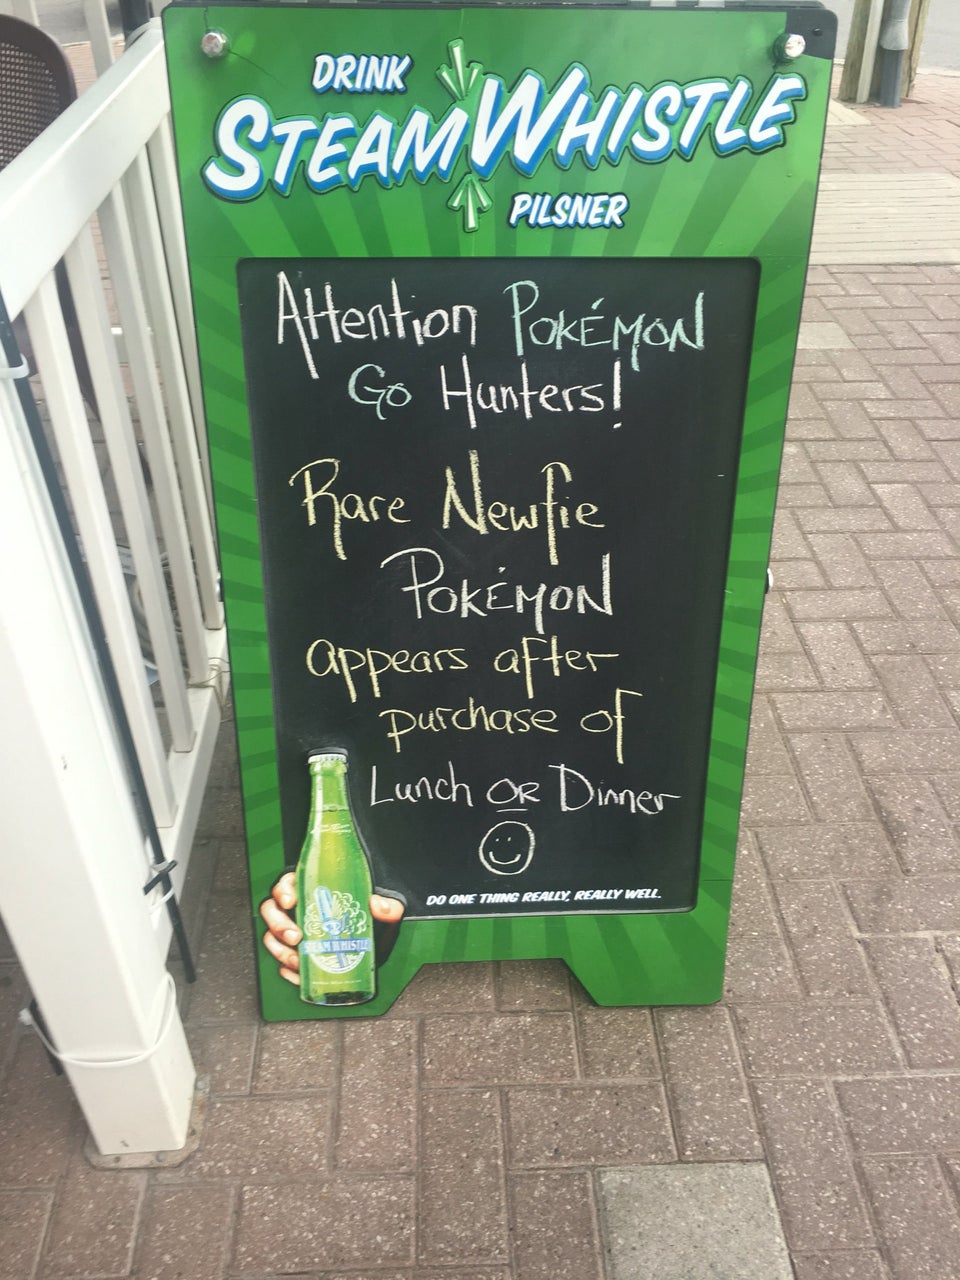 DRINK
STEAM WHISTLE
PILSNER
Attention POKÉMON
Go Hunters!
Rare Newfie
POKÉMON
appears after
purchase of
Lunch OR Dinner
DO ONE THING REALLY, REALLY WELL.
STEAM WHISTLE